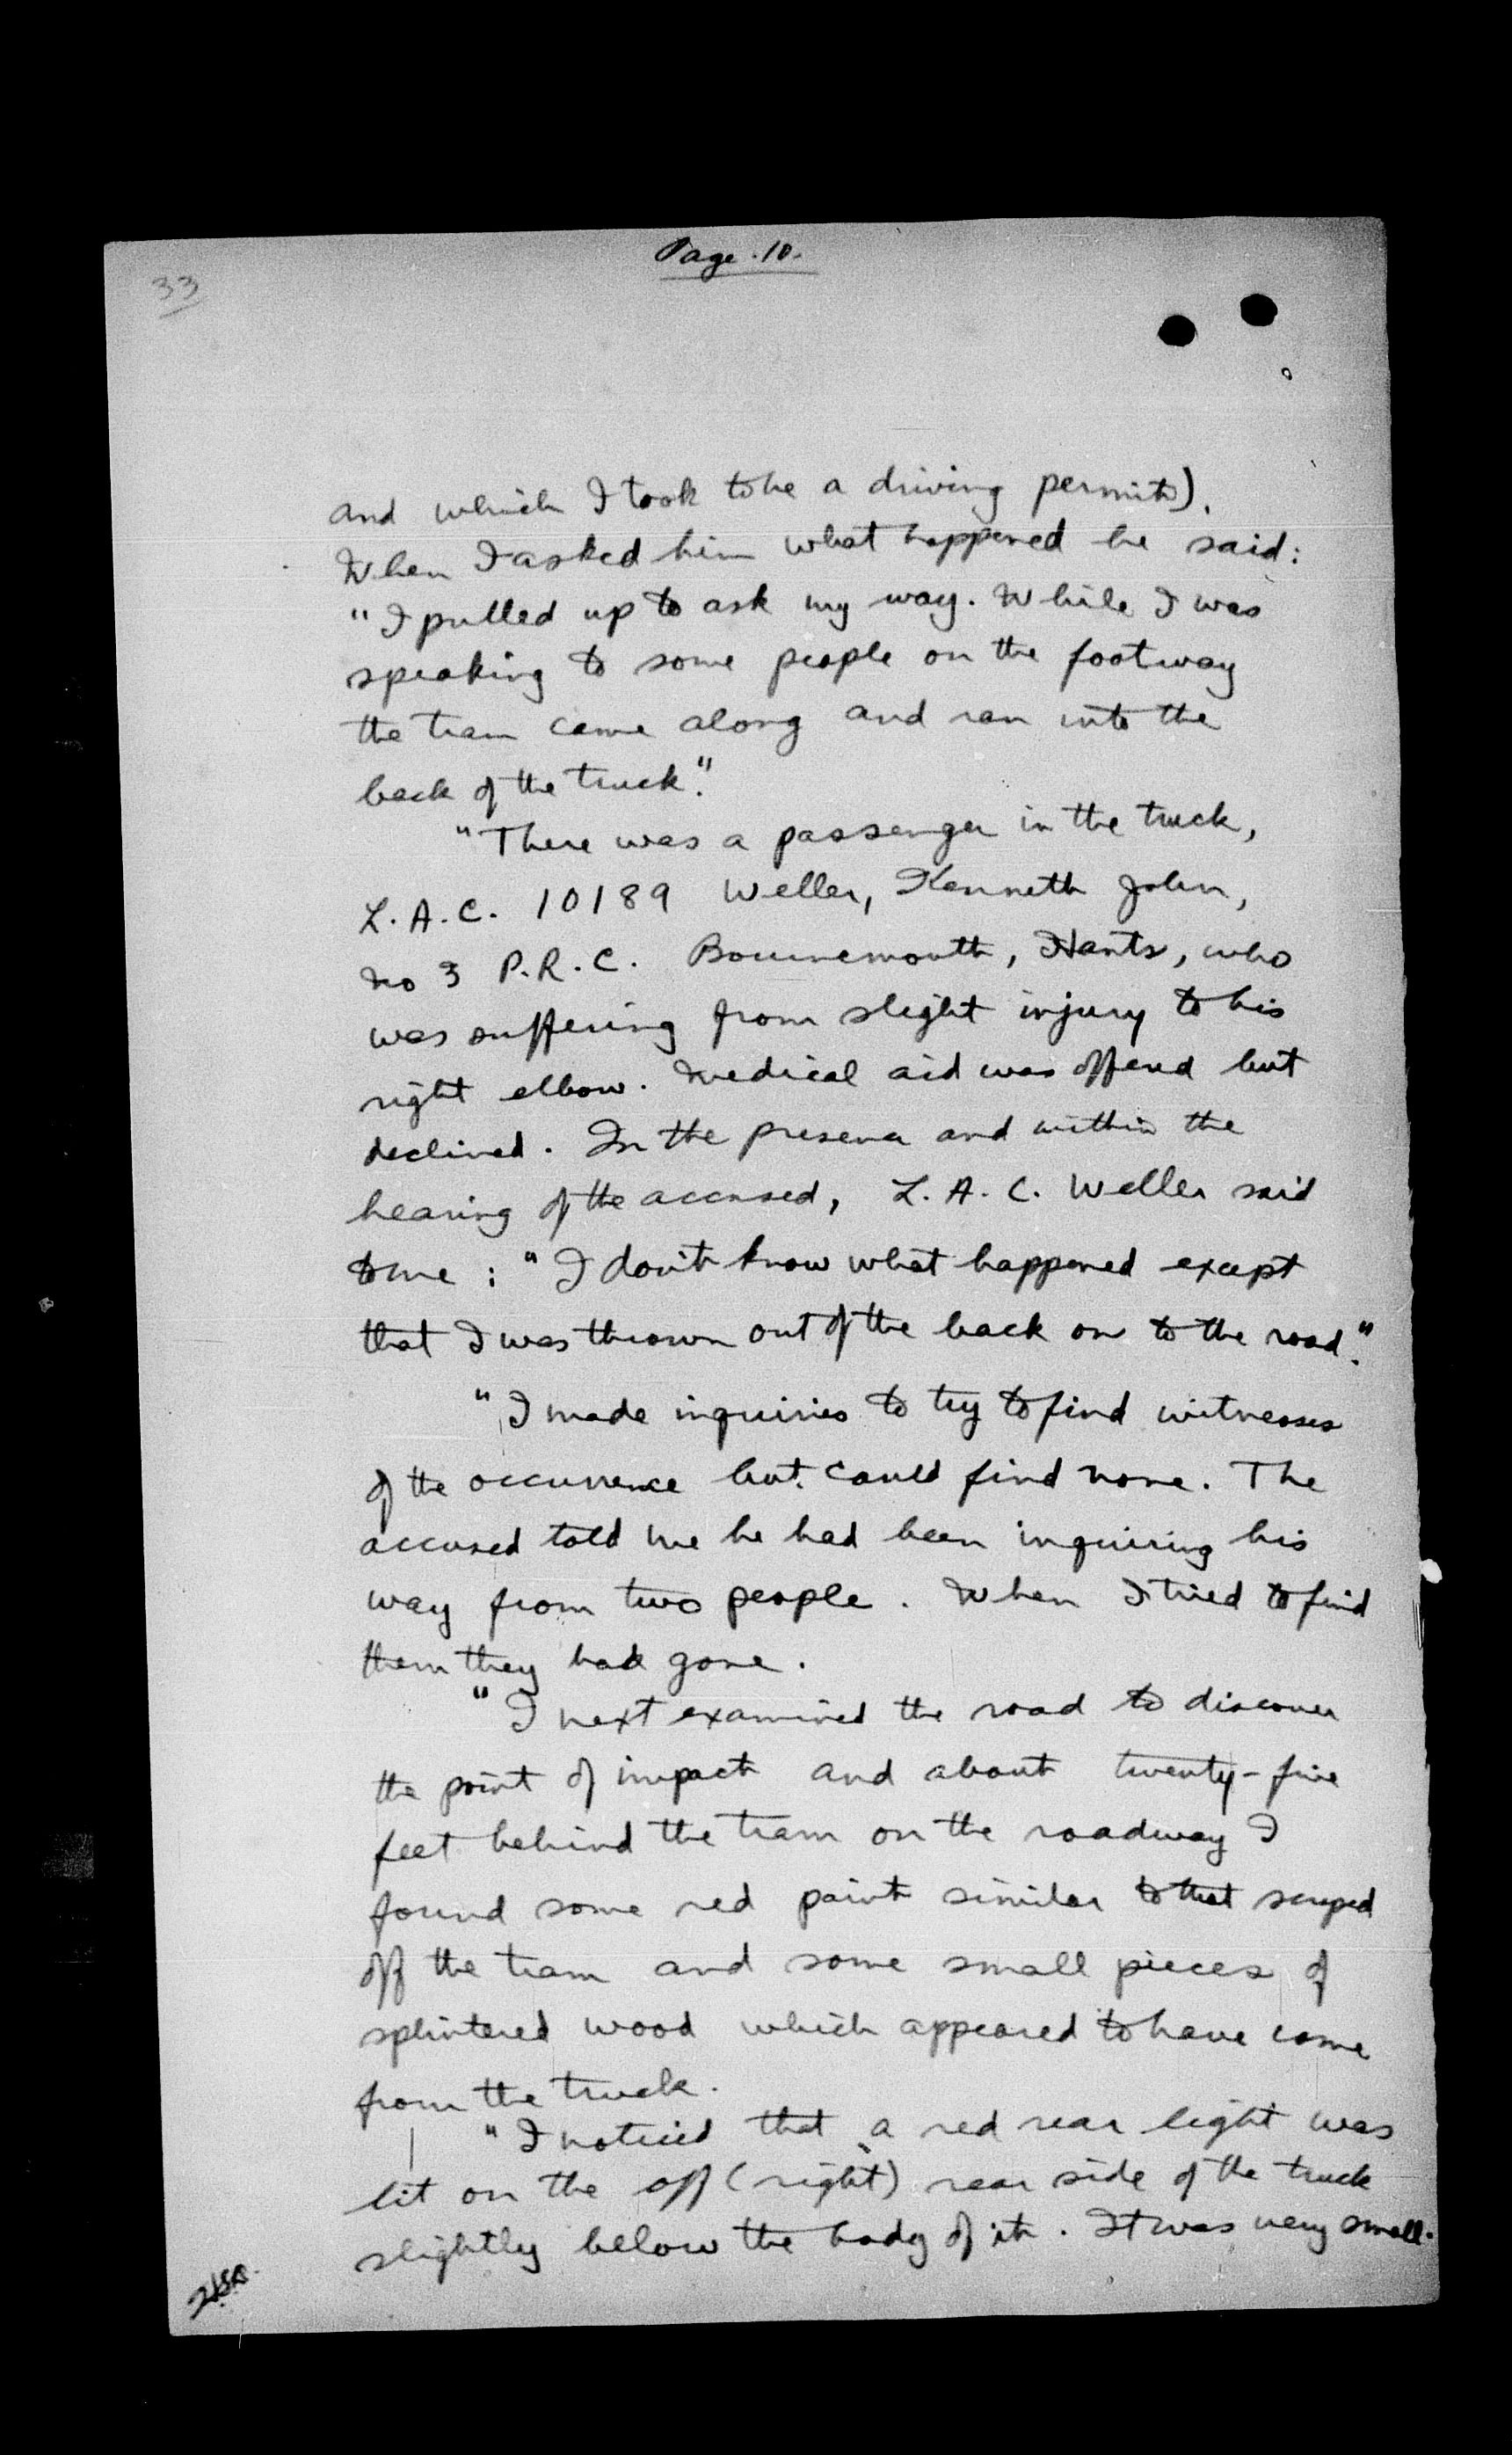 Page . 10.
33
and which I took to be a driving permit).
When I asked him what happened he said:
"I pulled up to ask my way. While I was
speaking to some people on the footway
the tram came along and ran into the
back of the truck."
"There was a passenger in the truck,
L.A.C. 10189 Weller, Kenneth John,
No 3 P.R.C. Bournemouth, Hants, who
was suffering from slight injury to his
right elbow. Medical aid was offered but
declined. In the presence and within the
hearing of the accused, L.A.C. Weller said
to me : "I don't know what happened except
that I was thrown out of the back on to the road."
"I made inquiries to try to find witnesses
of the occurrence but could find none. The
accused told me he had been inquiring his
way from two people. When I tried to find
them they had gone.
"I next examined the road to discover
the point of impact and about twenty-five
feet behind the tram on the roadway I
found some red paint similar to that scraped
off the tram and some small pieces of
splintered wood which appeared to have come
from the truck.
"I noticed that a red rear light was
lit on the off (right) rear side of the truck
slightly below the body of it. It was very small.